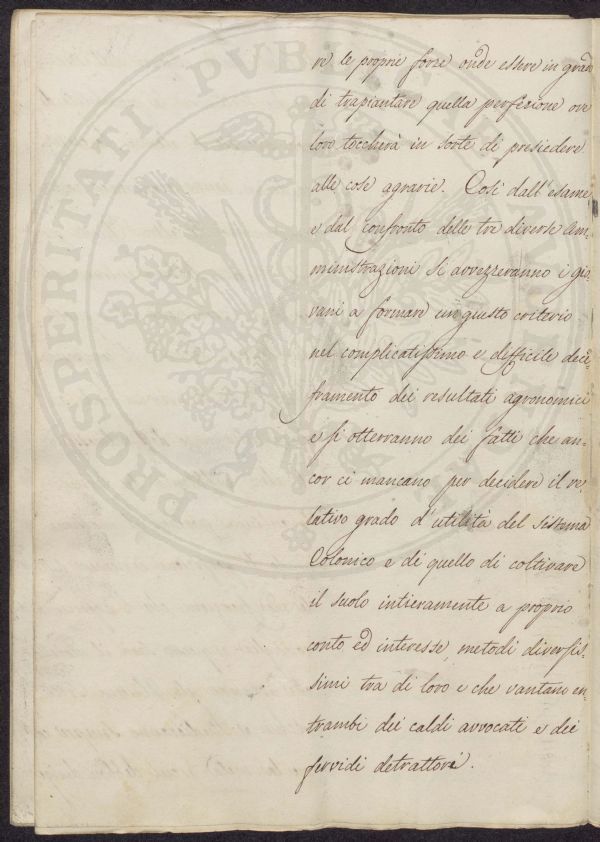 PROSPERITATI PUBLICAE
re le proprie forze onde essere in grado
di trapiantare quella perfezione ove
loro toccherà in sorte di presiedere
alle cose agrarie. Così dall'esame
e dal confronto delle tre diverse Am=
ministrazioni si avvezzeranno i gio=
vani a formare un giusto criterio
nel complicatissimo e difficile deci=
framento dei resultati agronomici
e si otterranno dei fatti che an=
cor ci mancano per decidere il re=
lativo grado d'utilità del Sistema
Colonico e di quello di coltivare
il suolo intieramente a proprio
conto ed interesse, metodi diversis=
simi tra di loro e che vantano en=
trambi dei caldi avvocati e dei
fervidi detrattori.